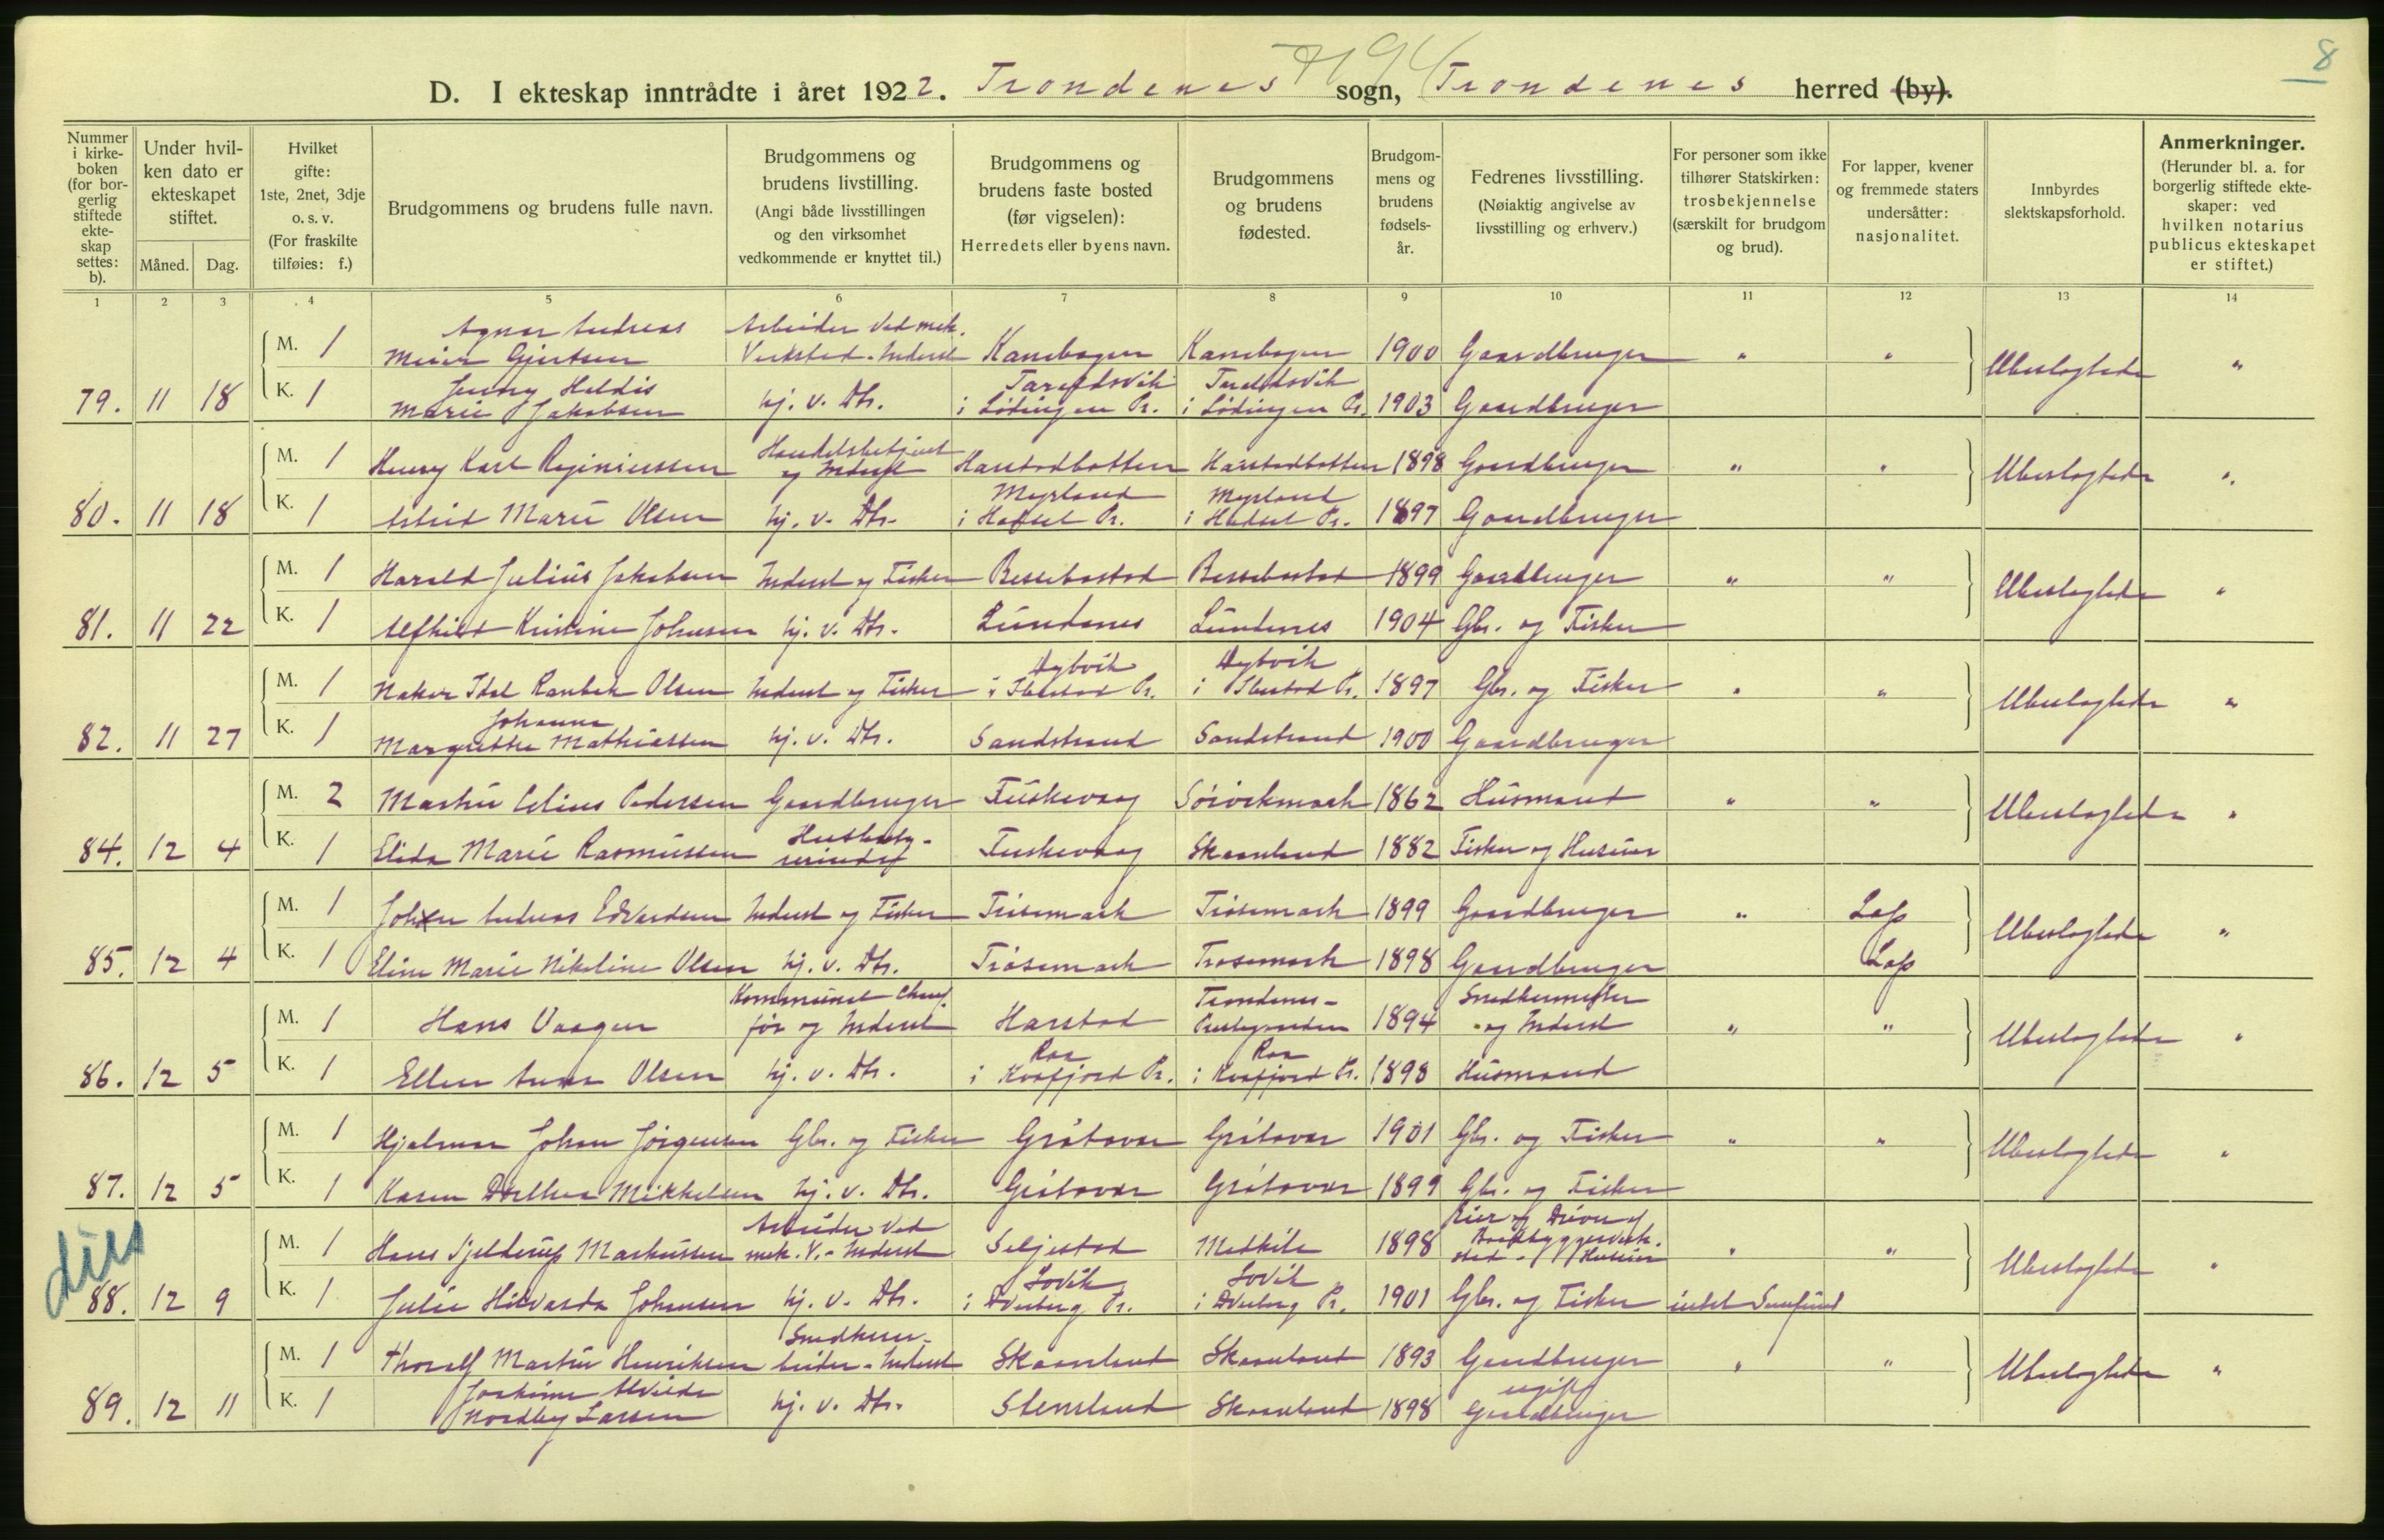 8
D. I ekteskap inntrådte i året 1922. Trondenes sogn, Trondenes herred (by).
Nummer i kirkeboken (for borgerlig stiftede ekteskap settes: b).
Under hvilken dato er ekteskapet stiftet.
Måned. Dag.
Hvilket gifte: 1ste, 2net, 3dje o. s. v. (For fraskilte tilføies: f.)
Brudgommens og brudens fulle navn.
Brudgommens og brudens livstilling. (Angi både livsstillingen og den virksomhet vedkommende er knyttet til.)
Brudgommens og brudens faste bosted (før vigselen): Herredets eller byens navn.
Brudgommens og brudens fødested.
Brudgommens og brudens fødselsår.
Fedrenes livsstilling. (Nøiaktig angivelse av livsstilling og erhverv.)
For personer som ikke tilhører Statskirken: trosbekjennelse (særskilt for brudgom og brud).
For lapper, kvener og fremmede staters undersåtter: nasjonalitet.
Innbyrdes slektskapsforhold.
Anmerkninger. (Herunder bl. a. for borgerlig stiftede ekteskaper: ved hvilken notarius publicus ekteskapet er stiftet.)
1 2 3 4 5 6 7 8 9 10 11 12 13 14
Agnar Andreas Arbeider ved mek.
M. 1 Meier Gjertsen Verksted - Inderst Kanebogen Kanebogen 1900 Gaardbruger " " Ubeslægtede "
Jenny Heldis Taraldsvik Taraldsvik
79. 11 18 K. 1 Marie Jakobsen hj. v. Dtr. i Lødingen Pr. i Lødingen Pr. 1903 Gaardbruger
Handelsbetjent
M. 1 Henry Karl Reginiussen og Inderst Harstadbotten Harstadbotten 1898 Gaardbruger " " Ubeslægtede "
Myrland Myrland
80. 11 18 K. 1 Astrid Marie Olsen hj. v. Dtr. i Hadsel Pr. i Hadsel Pr. 1897 Gaardbruger
M. 1 Harald Julius Jakobsen Inderst og Fisker Bessebostad Bessebostad 1899 Gaardbruger " " Ubeslægtede "
81. 11 22 K. 1 Alfhild Kristine Johnsen hj. v. Dtr. Lundenes Lundenes 1904 Gbr. og Fisker
Dybvik Dybvik
M. 1 Olsen Inderst og Fisker i Ibestad Pr. i Ibestad Pr. 1897 Gbr. og Fisker " " Ubeslægtede "
Johanna
82. 11 27 K. 1 Margrethe Mathiassen hj. v. Dtr. Sandstrand Sandstrand 1900 Gaardbruger
M. 2 Martin Pedersen Gaardbruger Fuskevaag Sørvikmark 1862 Husmand " " Ubeslægtede "
84. 12 4 K. 1 Elida Marie Rasmussen Fuskevaag Skaanland 1882 Fisker og Huseier
M. 1 Johan Andreas Edvardsen Inderst og Fisker Trøsemark Trøsemark 1899 Gaardbruger " Lap Ubeslægtede "
85. 12 4 K. 1 Eline Marie Nikoline Olsen hj. v. Dtr. Trøsemark Trøsemark 1898 Gaardbruger Lap
Trondenes- Snedkermester
M. 1 Hans Vaagen før og Inderst Harstad Prestegaarden 1894 og Inderst " " Ubeslægtede "
Raa Raa
86. 12 5 K. 1 Ellen Anna Olsen hj. v. Dtr. i Kvæfjord Pr. i Kvæfjord Pr. 1898 Husmand
M. 1 Hjalmar Johan Jørgensen Gbr. og Fisker Grøtavær Grøtavær 1901 Gbr. og Fisker " " Ubeslægtede "
87. 12 5 K. 1 Karen Dorthea Mikkelsen hj. v. Dtr. Grøtavær Grøtavær 1899 Gbr. og Fisker
Arbeider ved Eier og Driver af
M. 1 Hans Hjelderup Markussen mek. V. - Inderst Seljestad Medkila 1898 Baatbyggerverk- sted - Huseier " " Ubeslægtede "
Lovik Lovik
88. 12 9 K. 1 Julie Hilvarda Johansen hj. v. Dtr. i Dverberg Pr. i Dverberg Pr. 1901 Gbr. og Fisker intet Samfund
Snedkerar-
M. 1 Thoralf Martin Henriksen beider - Inderst Skaanland Skaanland 1893 Gaardbruger " " Ubeslægtede "
Joakime Alvilde ugift
89. 12 11 K. 1 Nordby Larsen hj. v. Dtr. Stensland Skaanland 1898 Gaardbruger